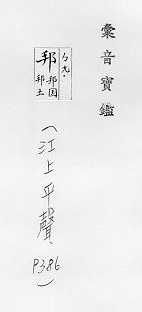 彙音寶鑑
ㄅㄤ·
邦
邦國
邦土
（江上平聲、P386）